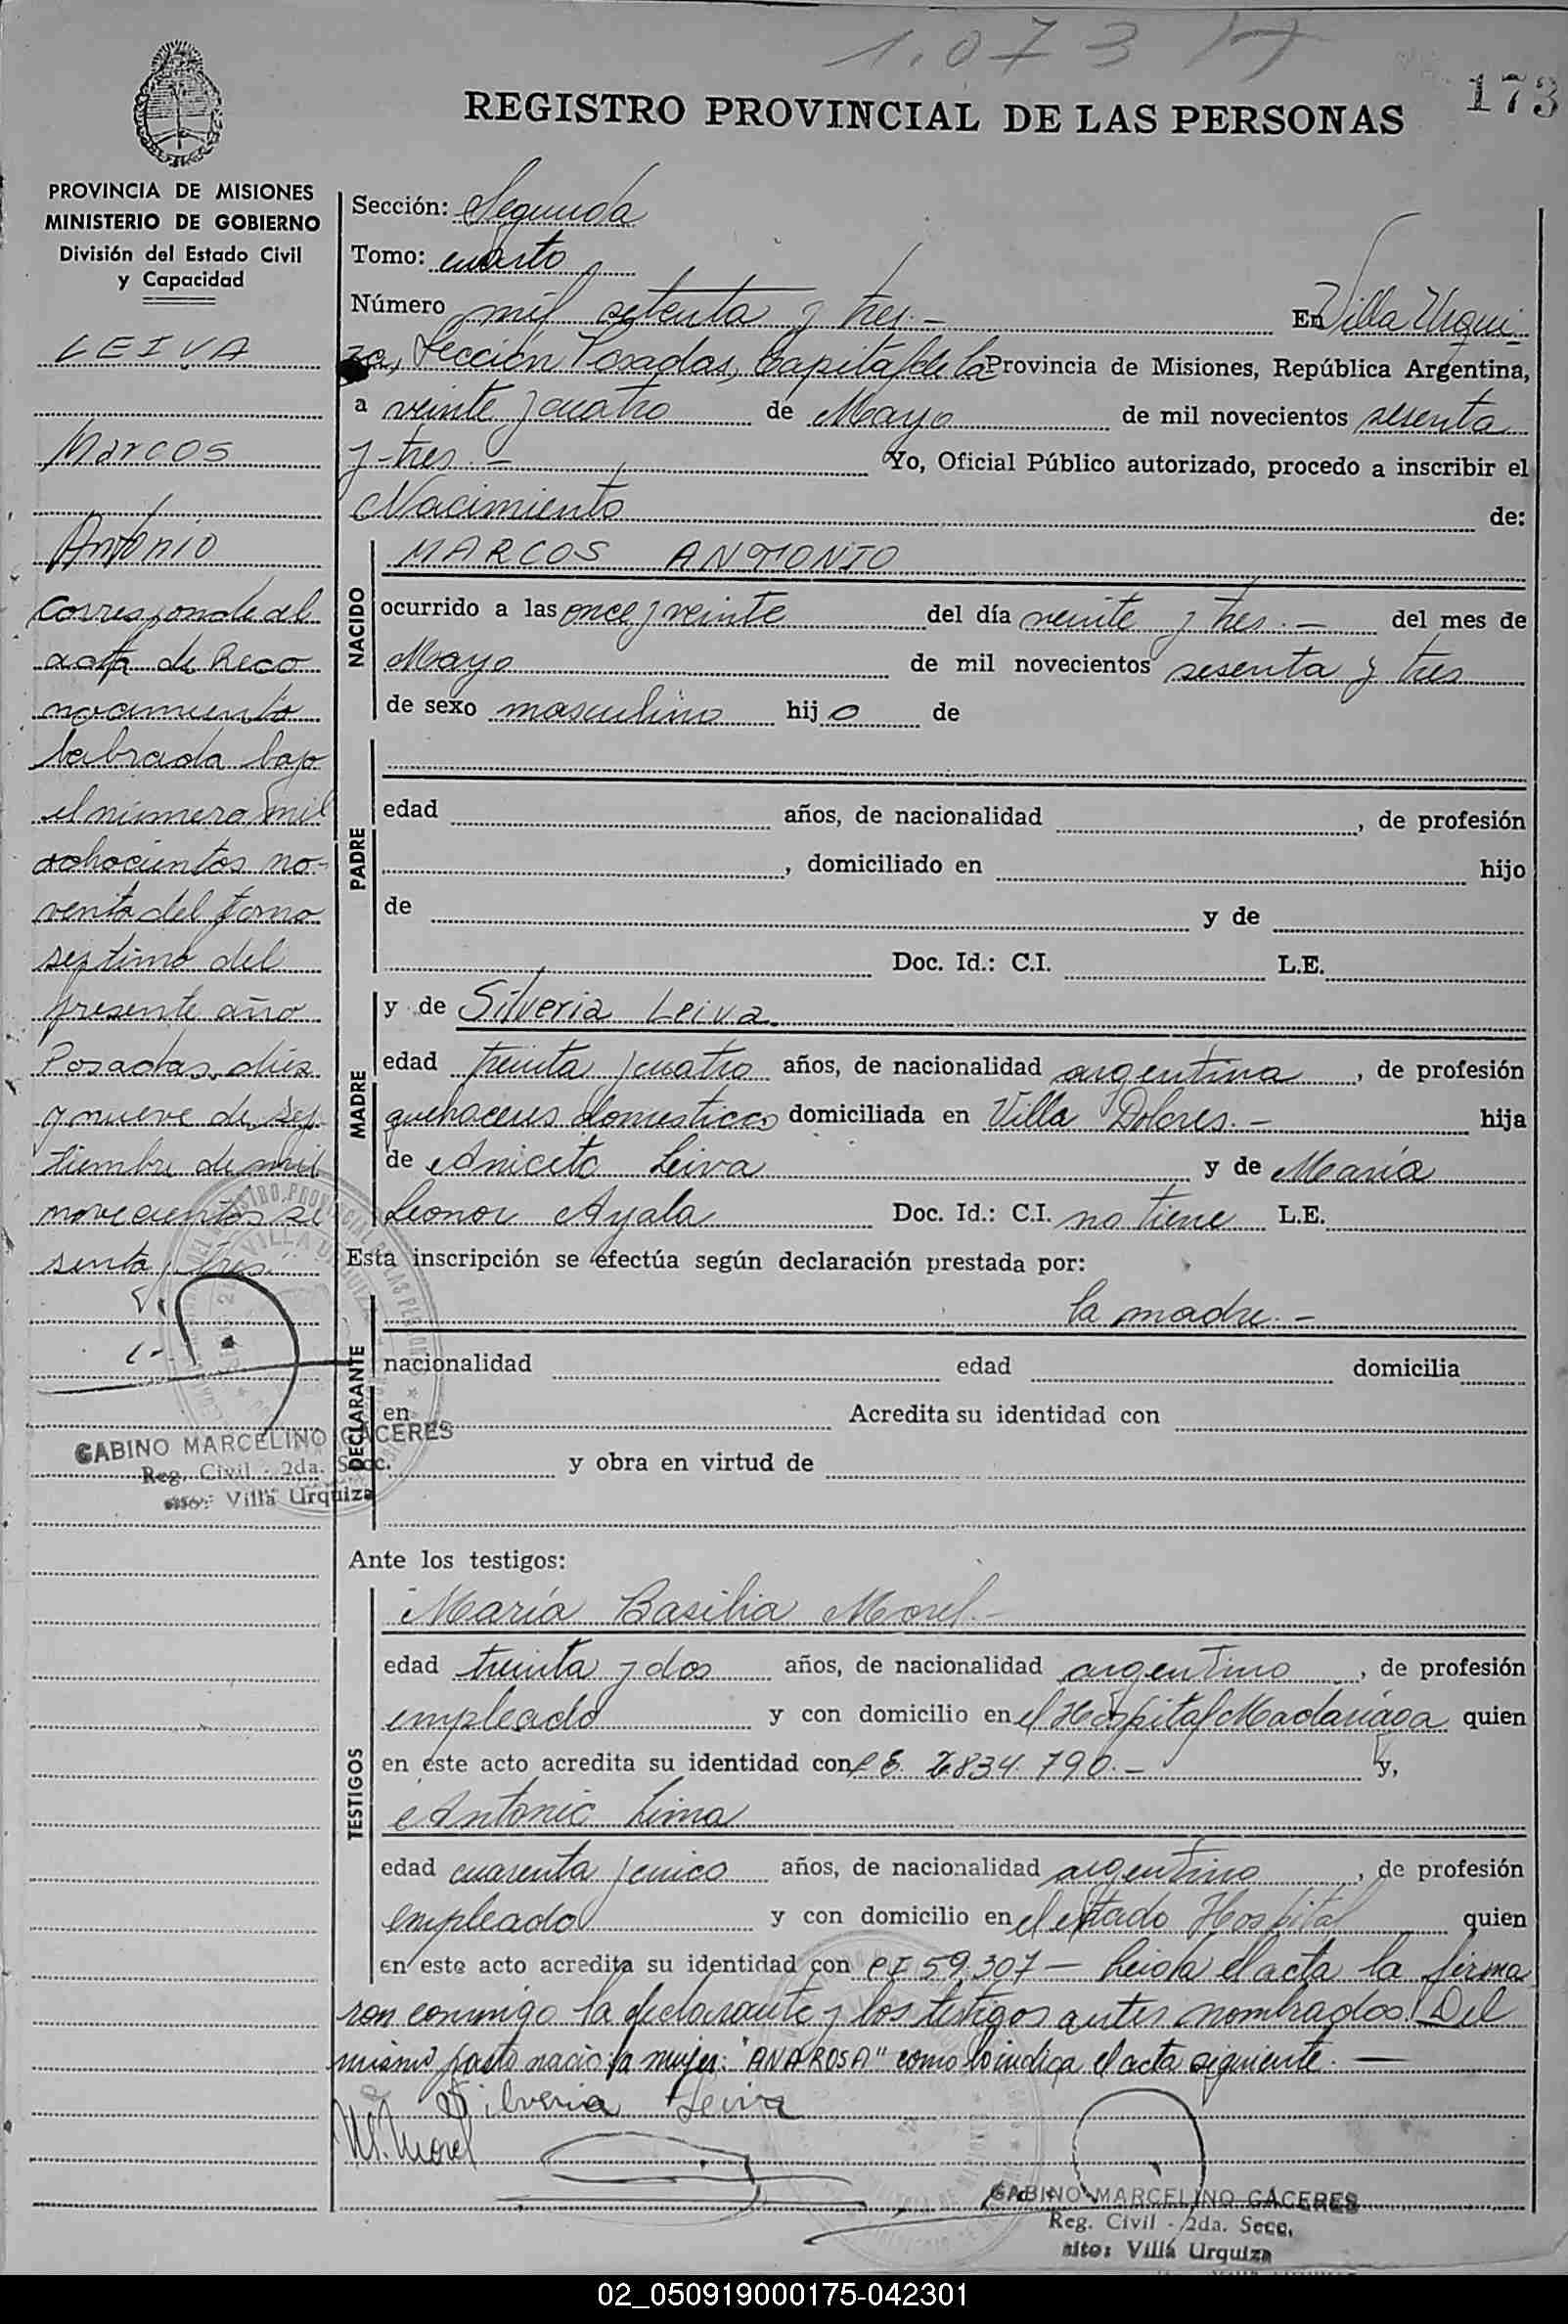 1.073
173
REGISTRO PROVINCIAL DE LAS PERSONAS
PROVINCIA DE MISIONES
MINISTERIO DE GOBIERNO
División del Estado Civil
y Capacidad
LEIVA
Marcos
Antonio
Corresponde al
acta de Reco
nocimiento
labrada bajo
el número mil
ochocientos no-
venta del tomo
septimo del
presente año
Posadas, diez
y nueve de Sep
tiembre de mil
novecientos se
senta y tres
GABINO MARCELINO CACERES
Reg. Civil - 2da. Secc.
sito: Villa Urquiza
Sección: Segunda
Tomo: cuarto
Número mil setenta y tres.- En Villa Urqui-
za, Sección Posadas, Capital de la Provincia de Misiones, República Argentina,
a veinte y cuatro de Mayo de mil novecientos sesenta
y tres.- Yo, Oficial Público autorizado, procedo a inscribir el
Nacimiento de:
NACIDO
MARCOS ANTONIO
ocurrido a las once y veinte del día veinte y tres.- del mes de
Mayo de mil novecientos sesenta y tres
de sexo masculino hijo de
PADRE
edad años, de nacionalidad , de profesión
, domiciliado en hijo
de y de
Doc. Id.: C.I. L.E.
MADRE
y de Silveria Leiva.
edad treinta y cuatro años, de nacionalidad argentina , de profesión
quehaceres domesticos domiciliada en Villa Dolores.- hija
de Aniceto Leiva y de María
Leonor Ayala Doc. Id.: C.I. no tiene L.E.
Esta inscripción se efectúa según declaración prestada por:
DECLARANTE
la madre.-
nacionalidad edad domicilia
en Acredita su identidad con
y obra en virtud de
Ante los testigos:
TESTIGOS
María Basilia Morel.-
edad treinta y dos años, de nacionalidad argentino , de profesión
empleado y con domicilio en el Hospital Madariaga quien
en este acto acredita su identidad con 834.790.- y,
Antonio Lima
edad cuarenta y cinco años, de nacionalidad argentino , de profesión
empleado y con domicilio en el citado Hospital quien
en este acto acredita su identidad con CI 59.307 - Leida el acta la firma
ron conmigo la declarante y los testigos antes nombrados. Del
mismo parto nació la mujer: "ANA ROSA" como lo indica el acta siguiente.-
Silveria Leiva
M. Morel
GABINO MARCELINO CACERES
Reg. Civil - 2da. Secc.
sito: Villa Urquiza
02_050919000175-042301